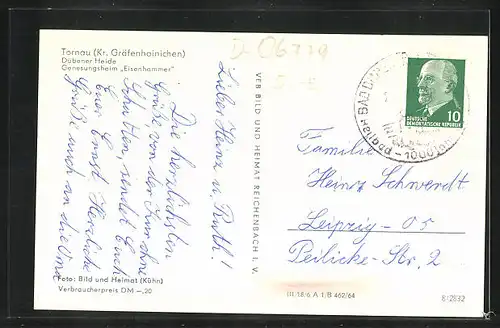 Tornau (Kr. Gräfenhainichen)
Dübener Heide
Genesungsheim „Eisenhammer"
Lieber Heinz u. Ruth!
Die herzlichsten
Grüße von der Kur ohne
sendet Euch
Euer Ernst. Herzliche
Grüße auch an die Oma
Foto: Bild und Heimat (Kühn)
Verbraucherpreis DM –,20
VEB BILD UND HEIMAT REICHENBACH I. V.
BAD DÜBEN
1000 Jahre
DEUTSCHE
DEMOKRATISCHE REPUBLIK
10
Familie
Heinz Schwendt
Leipzig - O5
Peilicke-Str. 2
III/18/6 A 1/B 462/64
8/2832